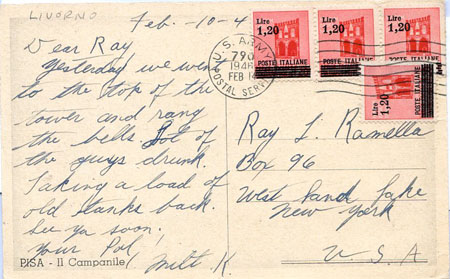 LIVORNO
Feb. - 10 - 4
Dear Ray
Yesterday we went
to the top of the
tower and rang
the bells Lot of
the guys drunk.
Taking a load of
old tanks back.
See ya soon,
Your Pal,
Milt. K
PISA - Il Campanile
U.S. ARMY
790
1946
FEB
POSTAL SERVICE
Lire
1,20
POSTE ITALIANE
Lire
1,20
POSTE ITALIANE
Lire
1,20
POSTE ITALIANE
Lire
1,20
POSTE ITALIANE
Ray L. Ramella
Box 96
West Sand Lake
New York
U.S.A